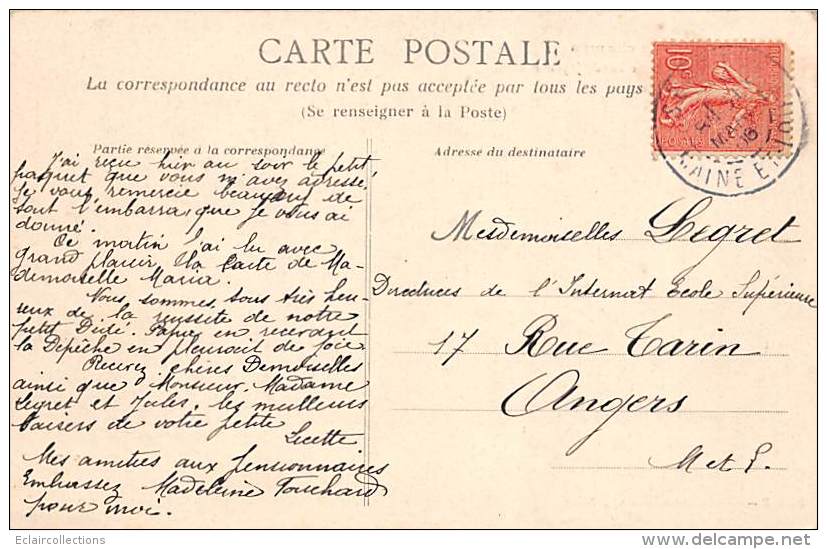 CARTE POSTALE
La correspondance au recto n'est pas acceptée par tous les pays
(Se renseigner à la Poste)
Partie réservée à la correspondance
J'ai reçu hier au soir le petit
paquet que vous m'avez adressé,
Je vous remercie beaucoup de
tout l'embarras que je vous ai
donné.
Ce matin j'ai lu avec
grand plaisir la carte de Ma-
demoiselle Maria.
Nous sommes tous très heu-
reux de la réussite de notre
petit Dédé. Papa en recevant
la Depêche en pleurait de joie
Recevez chères Demoiselles
ainsi que Monsieur, Madame
Legret et Jules, les meilleurs
baisers de votre petite
Lucette
Mes amitiés aux pensionnaires
Embrassez Madeleine Touchard
pour moi.
Adresse du destinataire
Mesdemoiselles Legret
Directrices de l'Internat Ecole Supérieure
17 Rue Tarin
Angers
M et L.
10c
POSTES
MAINE ET LOIRE
Eclaircollections
delcampe.net